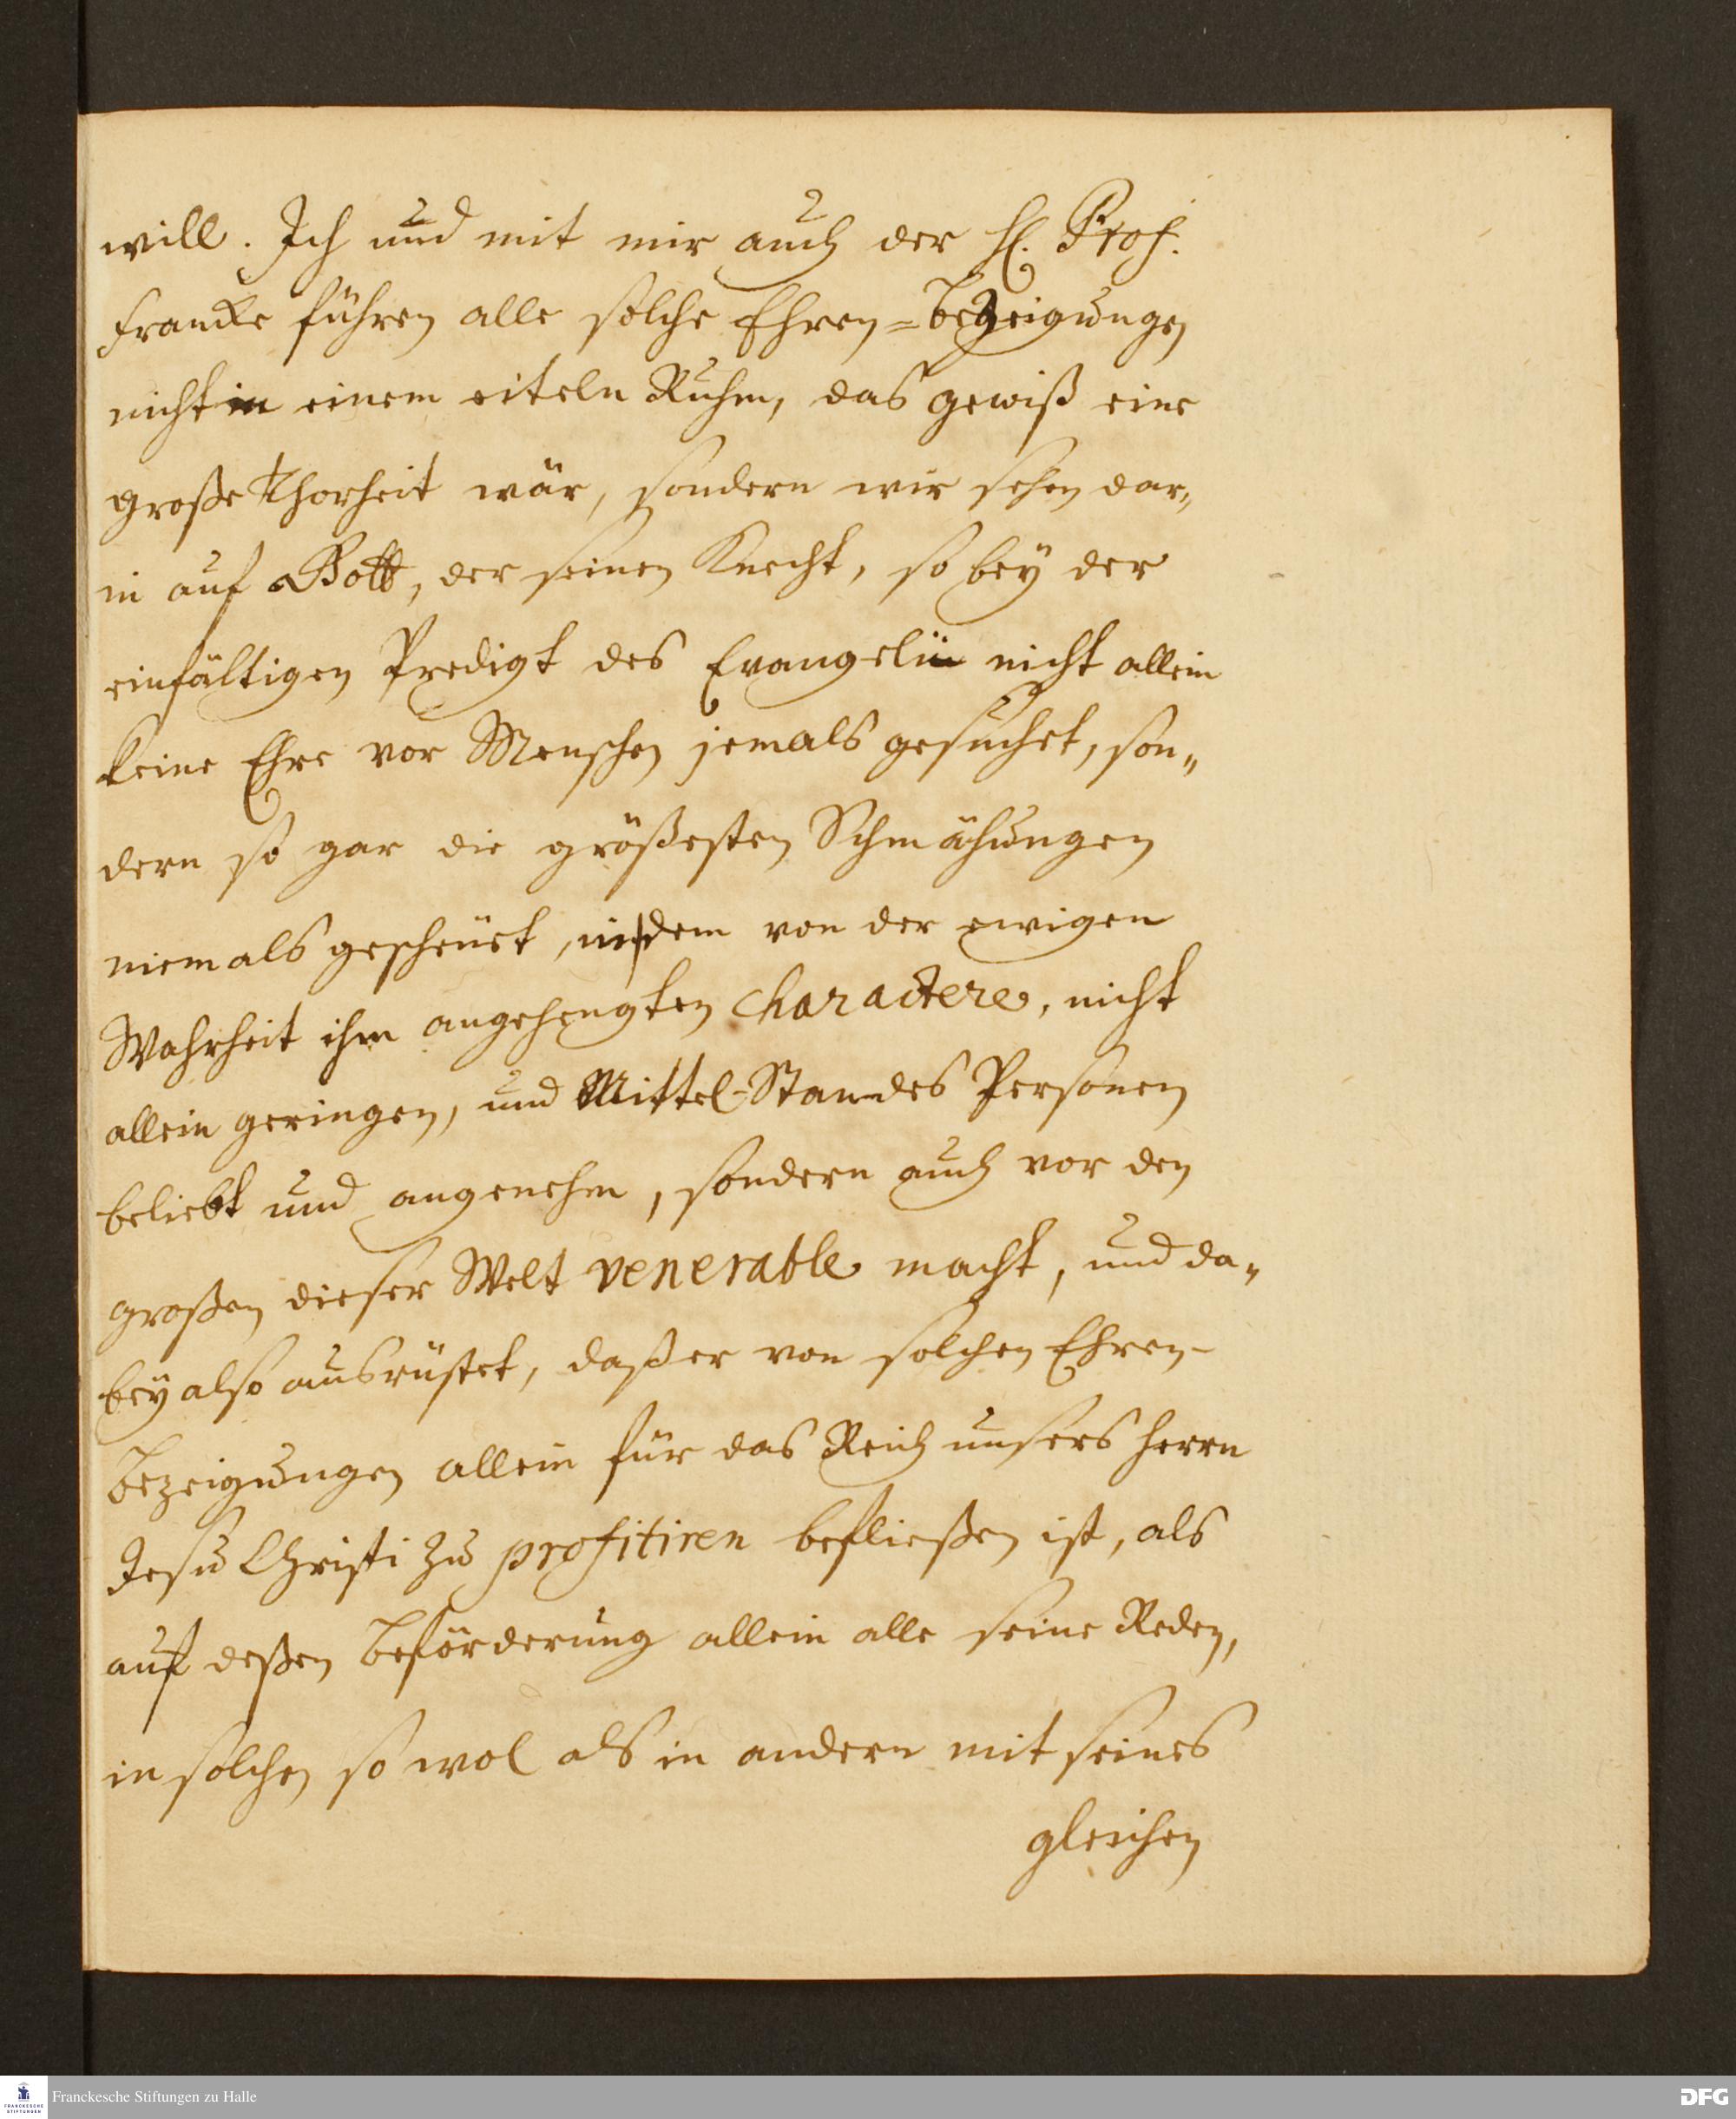 will. Ich und mit mir auch der H. Prof.
Francke führen alle solche Ehren=Bezeigungen
nicht in einem eiteln Ruhm, das gewiß eine
große Thorheit wär, sondern wir sehen dar„
in auf Gott, der seinen Knecht, so bey der
einfältigen Predigt des Evangelii nicht allein
keine Ehre vor Menschen jemals gesuchet, son„
dern so gar die größesten Schmähungen
niemals gescheuet, in dem von der ewigen
Wahrheit ihm angehengten Charactere, nicht
allein geringen, und Mittel-Standes Personen
beliebt und angenehm, sondern auch vor den
großen dieser Welt venerable macht, und da„
bey also ausrüstet, daß er von solchen Ehren-
Bezeigungen allein für das Reich unsers Herrn
Jesu Christi zu profitiren befließen ist, als
auf deßen Beförderung allein alle seine Reden,
in solchen so wol als in andern mit seines
gleichen
FRANCKESCHE STIFTUNGEN
Franckesche Stiftungen zu Halle
DFG